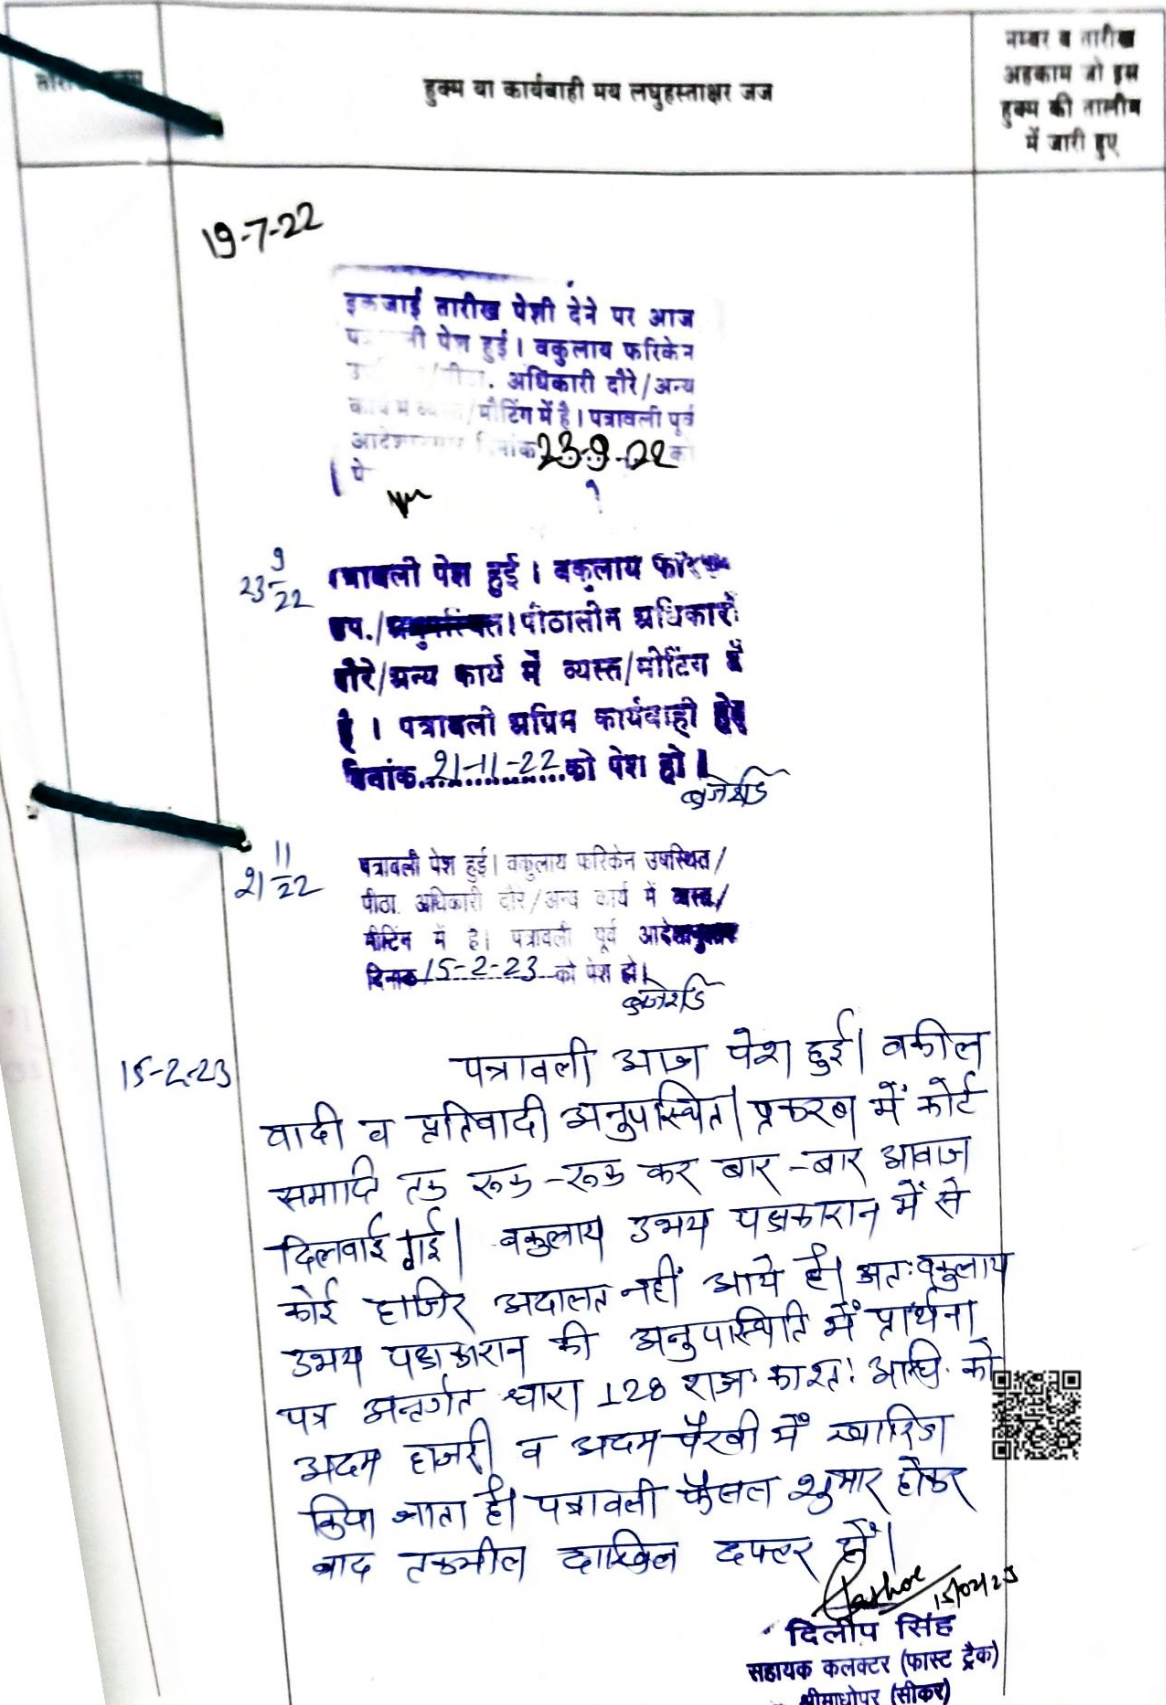 नम्बर व तारीख
अहकाम जो इस
हुक्म की तामील
में जारी हुए
हुक्म या कार्यवाही मय लघुहस्ताक्षर जज
19-7-22
इकजाई तारीख पेशी देने पर आज
पेश हुई। वकुलाय फरिकेन
अधिकारी दौरे/अन्य
/मीटिंग में है। पत्रावली पूर्व
23-9-22 को
पे
23 9/22
पत्रावली पेश हुई। वकुलाय
उप./अनुपस्थित। पीठासीन अधिकारी
दौरे/अन्य कार्य में व्यस्त/मीटिंग में
है। पत्रावली अग्रिम कार्यवाही हेतु
दिनांक 21-11-22 को पेश हो।
21 11/22
पत्रावली पेश हुई। वकुलाय फरिकेन उपस्थित/
पीठा. अधिकारी दौरे/अन्य कार्य में व्यस्त/
मीटिंग में है। पत्रावली पूर्व आदेशानुसार
दिनांक 15-2-23 को पेश हो।
15-2-23
पत्रावली आज पेश हुई। वकील
वादी व प्रतिवादी अनुपस्थित। प्रकरण में कोर्ट
समाप्ति तक रूक-रूक कर बार-बार आवाज
दिलवाई गई। वकुलाय उभय पक्षकारान में से
कोई हाजिर अदालत नहीं आये है। अतः वकुलाय
उभय पक्षकारान की अनुपस्थिति में प्रार्थना
पत्र अन्तर्गत धारा 128 राज. काश्त. अधि. को
अदम हाजरी व अदम पैरवी में खारिज
किया जाता है। पत्रावली फैसल शुमार होकर
बाद तकमील दाखिल दफ्तर हो।
15/02/23
दिलीप सिंह
सहायक कलक्टर (फास्ट ट्रैक)
श्रीमाधोपुर (सीकर)